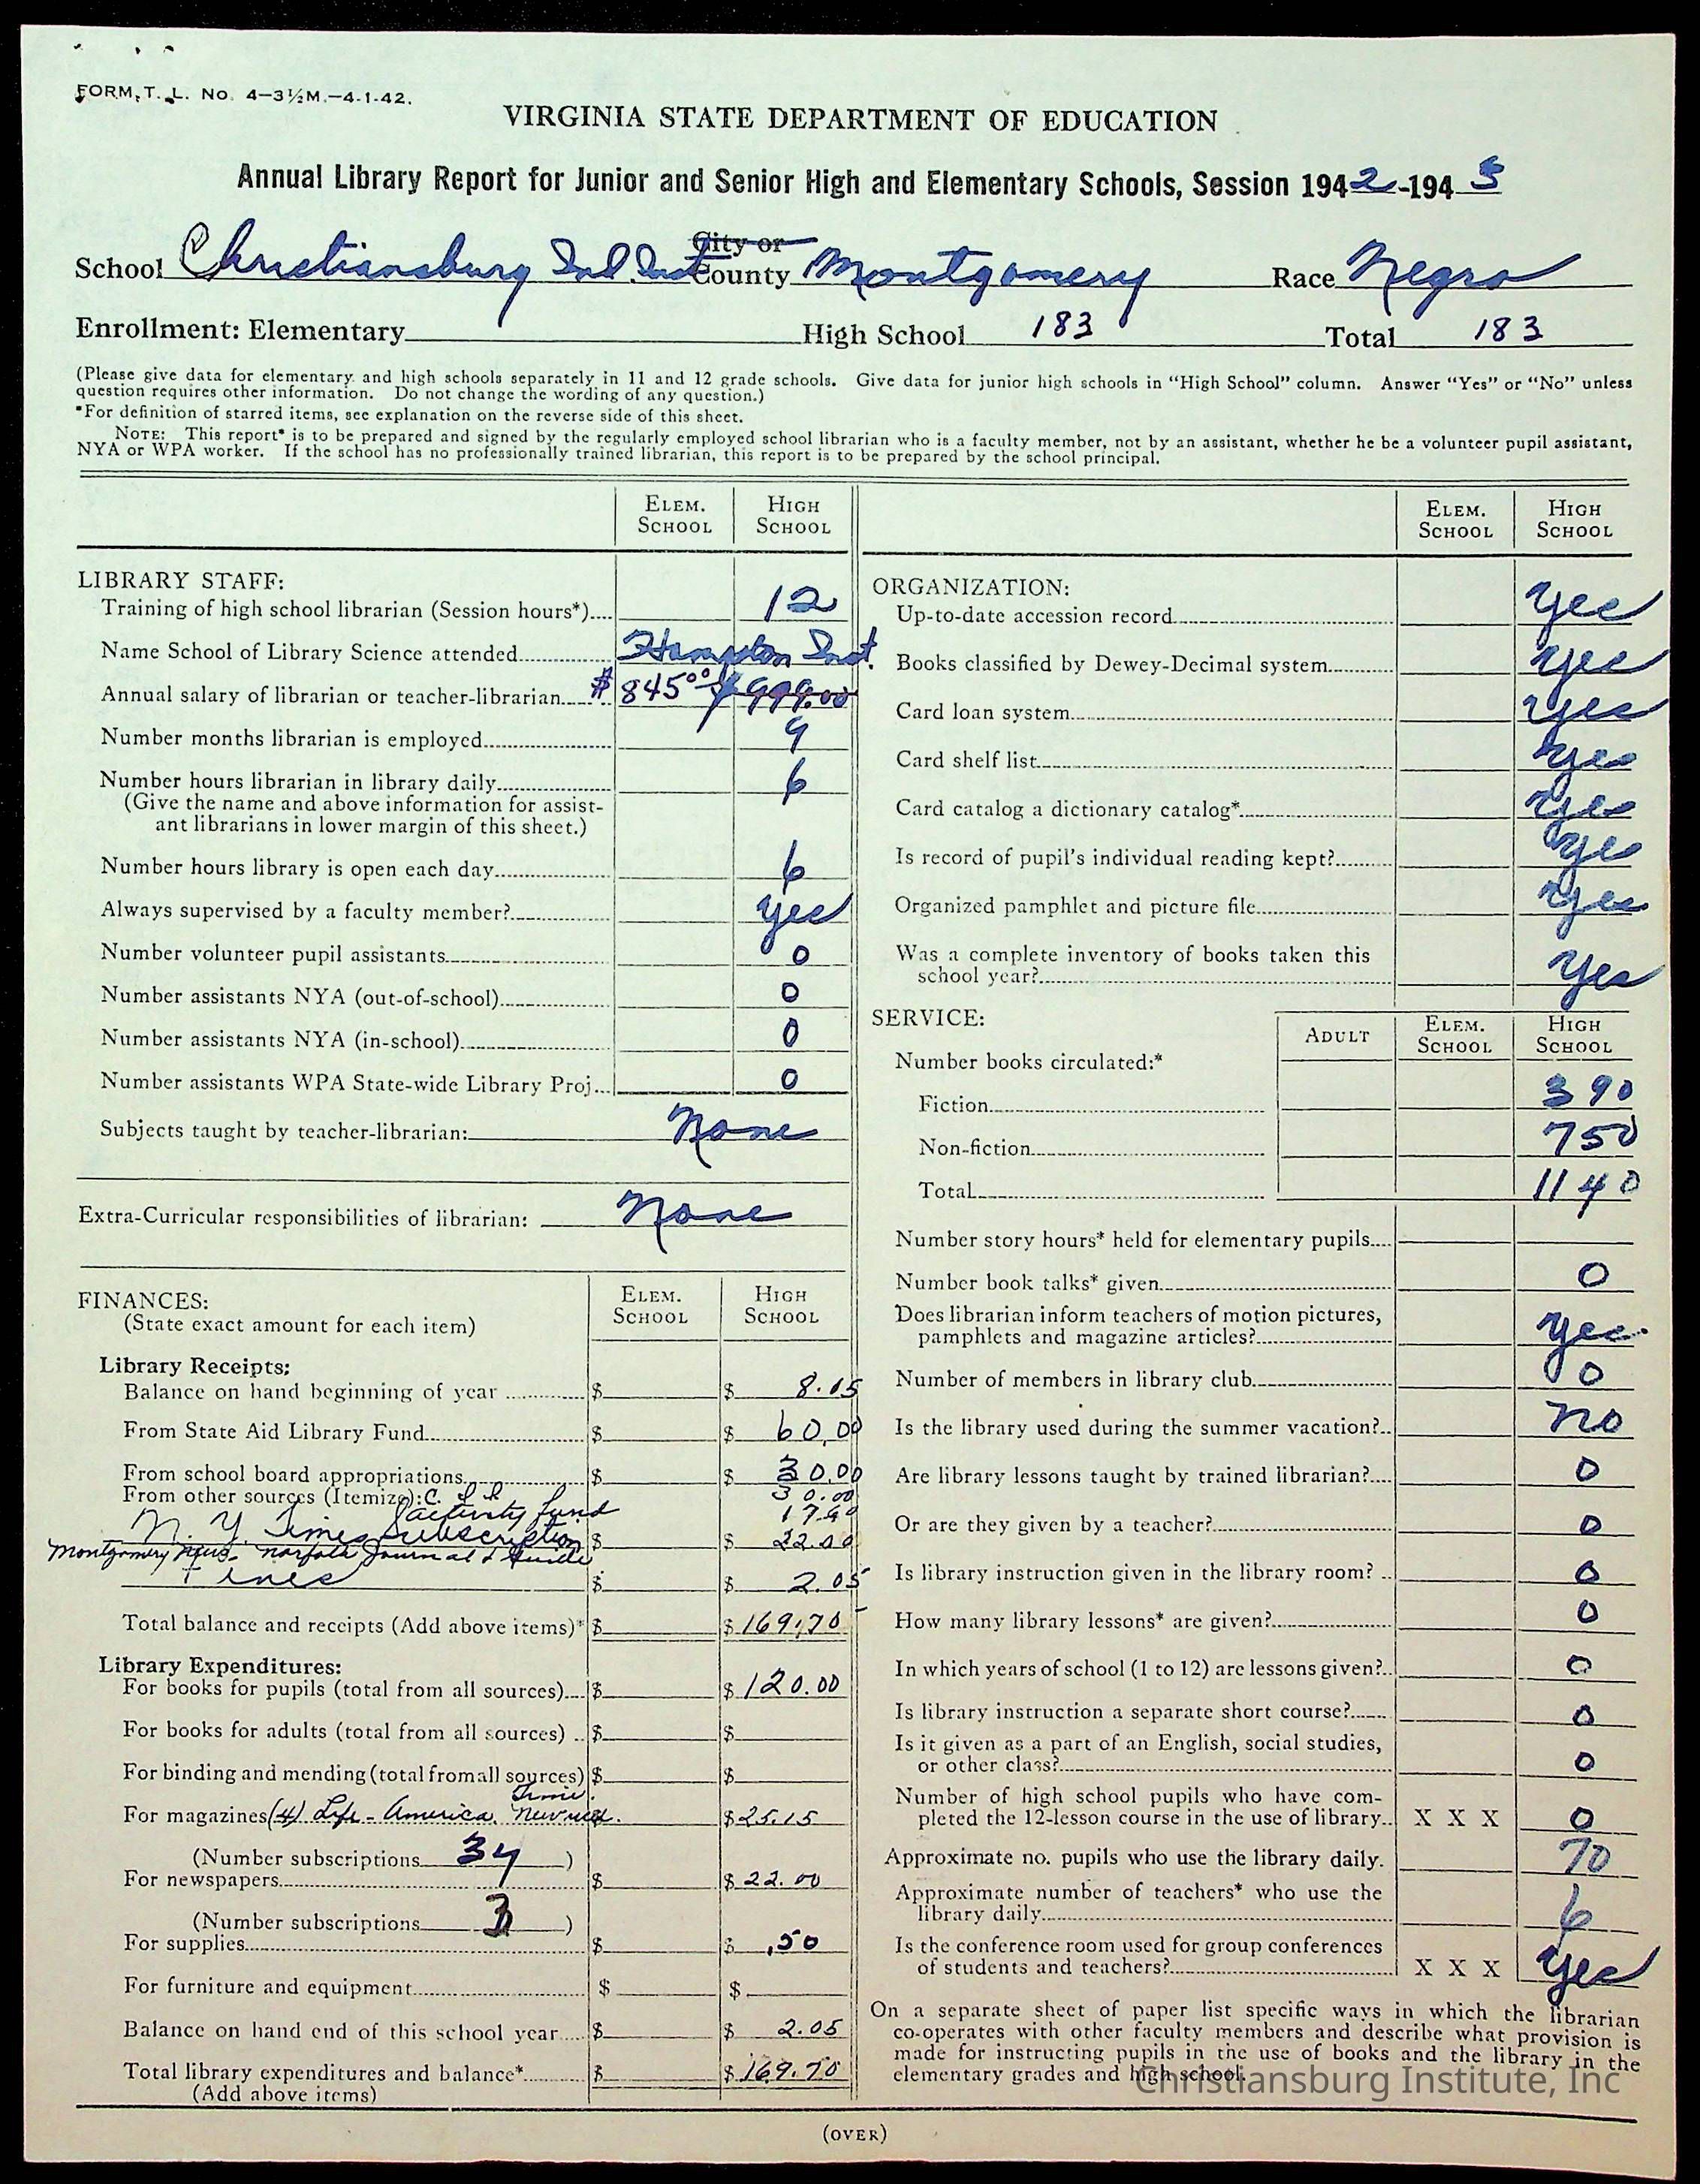 FORM, T. L. No. 4—3½M.—4-1-42.
VIRGINIA STATE DEPARTMENT OF EDUCATION
Annual Library Report for Junior and Senior High and Elementary Schools, Session 1942-1943
School Christiansburg Ind. Inst. City or County Montgomery Race Negro
Enrollment: Elementary High School 183 Total 183
(Please give data for elementary and high schools separately in 11 and 12 grade schools. Give data for junior high schools in “High School” column. Answer “Yes” or “No” unless
question requires other information. Do not change the wording of any question.)
*For definition of starred items, see explanation on the reverse side of this sheet.
NOTE: This report* is to be prepared and signed by the regularly employed school librarian who is a faculty member, not by an assistant, whether he be a volunteer pupil assistant,
NYA or WPA worker. If the school has no professionally trained librarian, this report is to be prepared by the school principal.
ELEM. SCHOOL HIGH SCHOOL
LIBRARY STAFF:
Training of high school librarian (Session hours*) 12
Name School of Library Science attended Hampton Inst.
Annual salary of librarian or teacher-librarian $ 845.00 999.00
Number months librarian is employed 9
Number hours librarian in library daily 6
(Give the name and above information for assist-
ant librarians in lower margin of this sheet.)
Number hours library is open each day 6
Always supervised by a faculty member? yes
Number volunteer pupil assistants 0
Number assistants NYA (out-of-school) 0
Number assistants NYA (in-school) 0
Number assistants WPA State-wide Library Proj. 0
Subjects taught by teacher-librarian: None
Extra-Curricular responsibilities of librarian: None
FINANCES: ELEM. SCHOOL HIGH SCHOOL
(State exact amount for each item)
Library Receipts:
Balance on hand beginning of year $ $ 8.15
From State Aid Library Fund $ $ 60.00
From school board appropriations $ $ 30.00
From other sources (Itemize): C. I. I. 30.00
activity fund 17.50
N. Y. Times subscription $ $ 22.00
Montgomery News - Norfolk Journal & Guide
Fines $ $ 2.05
Total balance and receipts (Add above items)* $ $ 169.70
Library Expenditures:
For books for pupils (total from all sources) $ $ 120.00
For books for adults (total from all sources) $ $
For binding and mending (total from all sources) $ $
Time.
For magazines (4) Life - America, Newsweek. $ 25.15
(Number subscriptions 34 )
For newspapers $ $ 22.00
(Number subscriptions 3 )
For supplies $ $ .50
For furniture and equipment $ $
Balance on hand end of this school year $ $ 2.05
Total library expenditures and balance* $ $ 169.70
(Add above items)
ELEM. SCHOOL HIGH SCHOOL
ORGANIZATION:
Up-to-date accession record yes
Books classified by Dewey-Decimal system yes
Card loan system yes
Card shelf list yes
Card catalog a dictionary catalog* yes
Is record of pupil's individual reading kept? yes
Organized pamphlet and picture file yes
Was a complete inventory of books taken this
school year? yes
SERVICE: ADULT ELEM. SCHOOL HIGH SCHOOL
Number books circulated:*
Fiction 390
Non-fiction 750
Total 1140
Number story hours* held for elementary pupils
Number book talks* given 0
Does librarian inform teachers of motion pictures,
pamphlets and magazine articles? yes
Number of members in library club 0
Is the library used during the summer vacation? no
Are library lessons taught by trained librarian? 0
Or are they given by a teacher? 0
Is library instruction given in the library room? 0
How many library lessons* are given? 0
In which years of school (1 to 12) are lessons given? 0
Is library instruction a separate short course? 0
Is it given as a part of an English, social studies,
or other class? 0
Number of high school pupils who have com-
pleted the 12-lesson course in the use of library X X X 0
Approximate no. pupils who use the library daily. 70
Approximate number of teachers* who use the
library daily 6
Is the conference room used for group conferences
of students and teachers? X X X yes
On a separate sheet of paper list specific ways in which the librarian
co-operates with other faculty members and describe what provision is
made for instructing pupils in the use of books and the library in the
elementary grades and high school.
Christiansburg Institute, Inc
(OVER)